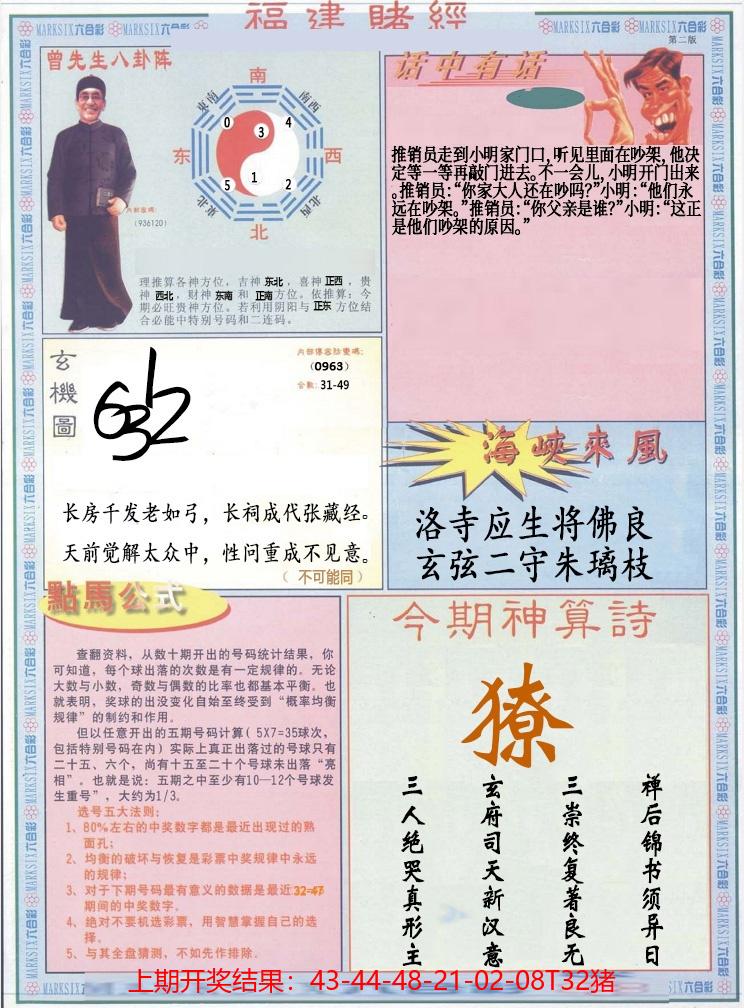 福建賭經
第二版
曾先生八卦阵
南
东南
南西
0
4
3
东
西
1
5
2
东北
北西
北
内部密碼:
(936120)
理推算各神方位，吉神 东北，喜神 正西，贵
神 西北，财神 东南 和 正南 方位。依推算：今
期必旺贵神方位。若利用阴阳与 正东 方位结
合必能中特别号码和二连码。
话中有话
推销员走到小明家门口，听见里面在吵架，他决
定等一等再敲门进去。不一会儿，小明开门出来
。推销员：“你家大人还在吵吗？”小明：“他们永
远在吵架。”推销员：“你父亲是谁？”小明：“这正
是他们吵架的原因。”
玄機圖
(0963)
合數: 31-49
长房千发老如弓，长祠成代张藏经。
天前觉解太众中，性问重成不见意。
（ 不可能同 ）
海峽來風
洛寺应生将佛良
玄弦二守朱璃枝
點馬公式
查翻资料，从数十期开出的号码统计结果，你
可知道，每个球出落的次数是有一定规律的。无论
大数与小数，奇数与偶数的比率也都基本平衡。也
就表明，奖球的出没变化自始至终受到“概率均衡
规律”的制约和作用。
但以任意开出的五期号码计算( 5X7=35球次，
包括特别号码在内) 实际上真正出落过的号球只有
二十五、六个，尚有十五至二十个号球未出落“亮
相”。也就是说：五期之中至少有10—12个号球发
生重号”，大约为1/3。
选号五大法则：
1、80%左右的中奖数字都是最近出现过的熟
面孔；
2、均衡的破坏与恢复是彩票中奖规律中永远
的规律；
3、对于下期号码最有意义的数据是最近32-47
期间的中奖数字。
4、绝对不要机选彩票，用智慧掌握自己的选
择。
5、与其全盘猜测，不如先作排除．
今期神算詩
獠
禅后锦书须异日
三崇终复著良无
玄府司天新汉意
三人绝哭真形主
上期开奖结果：43-44-48-21-02-08T32猪